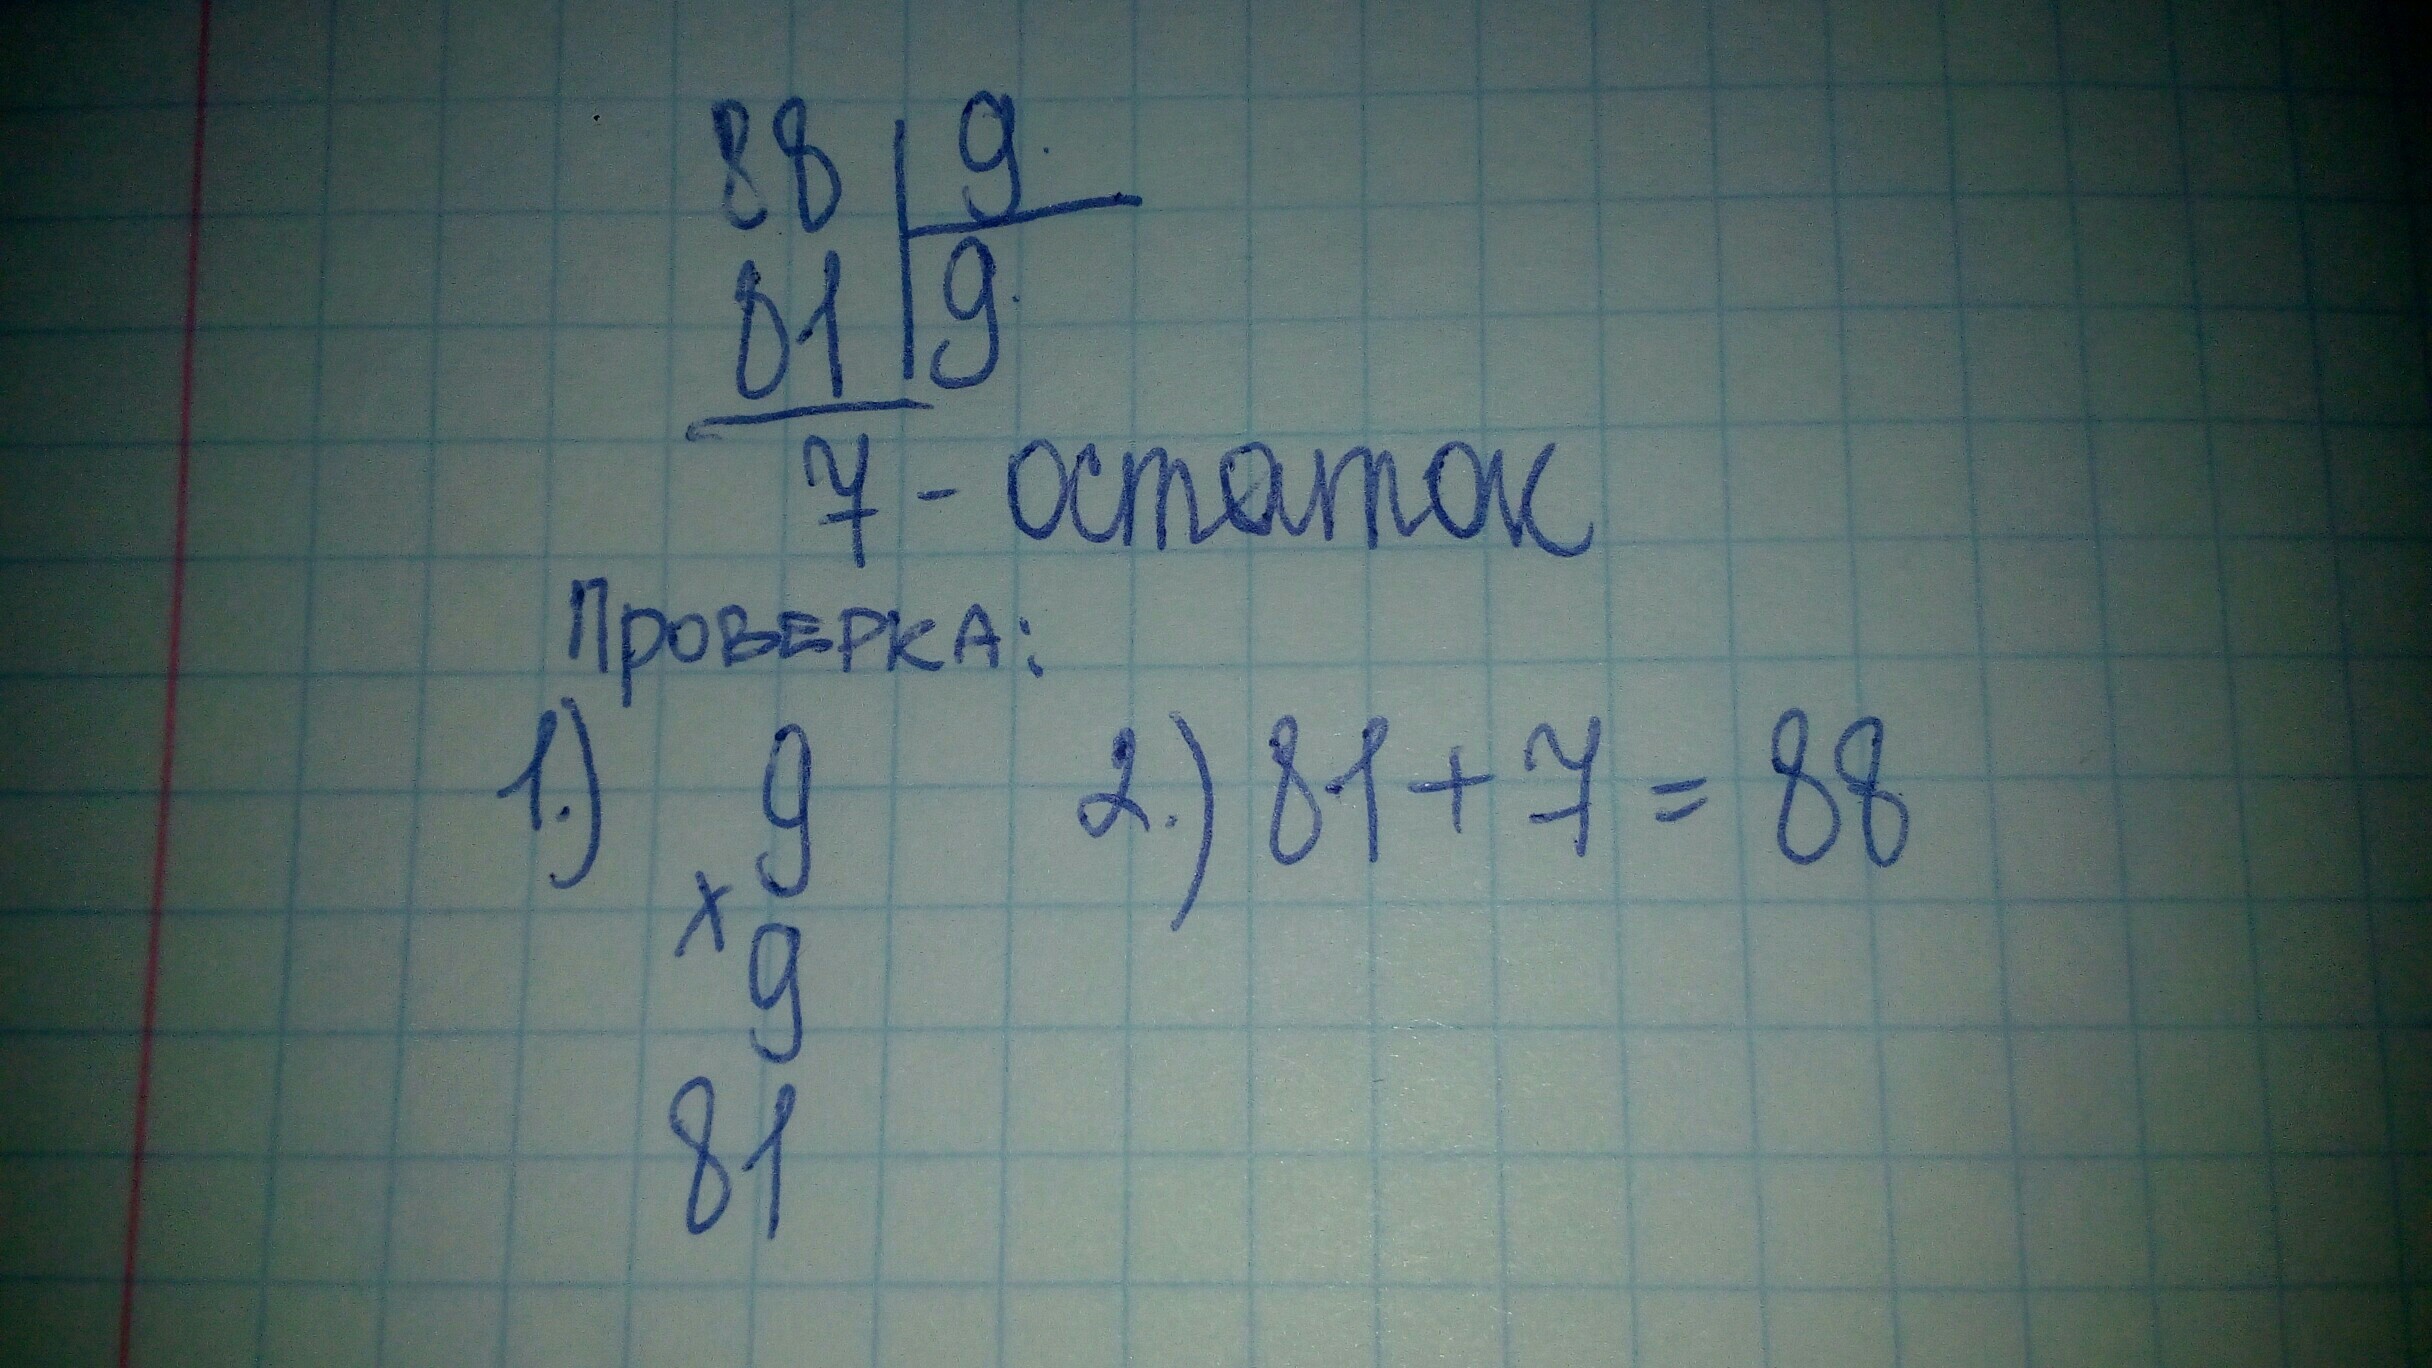 88 9
81 9
7 - остаток
Проверка:
1.) 9 2.) 81 + 7 = 88
x 9
81